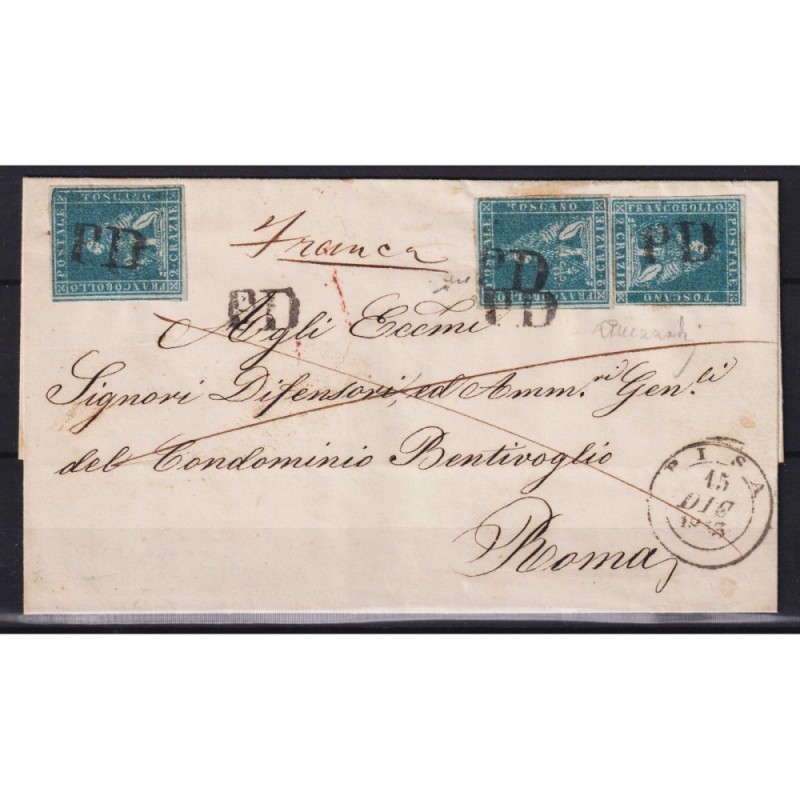 FRANCOBOLLO POSTALE TOSCANO 2 CRAZIE
PD
FRANCOBOLLO POSTALE TOSCANO 2 CRAZIE
PD
FRANCOBOLLO POSTALE TOSCANO 2 CRAZIE
PD
Franca
PD
PD
Agli Eccmi
Signori Difensori, ed Amm.ri Gen.li
del Condominio Bentivoglio
Roma
PISA
15
DIC